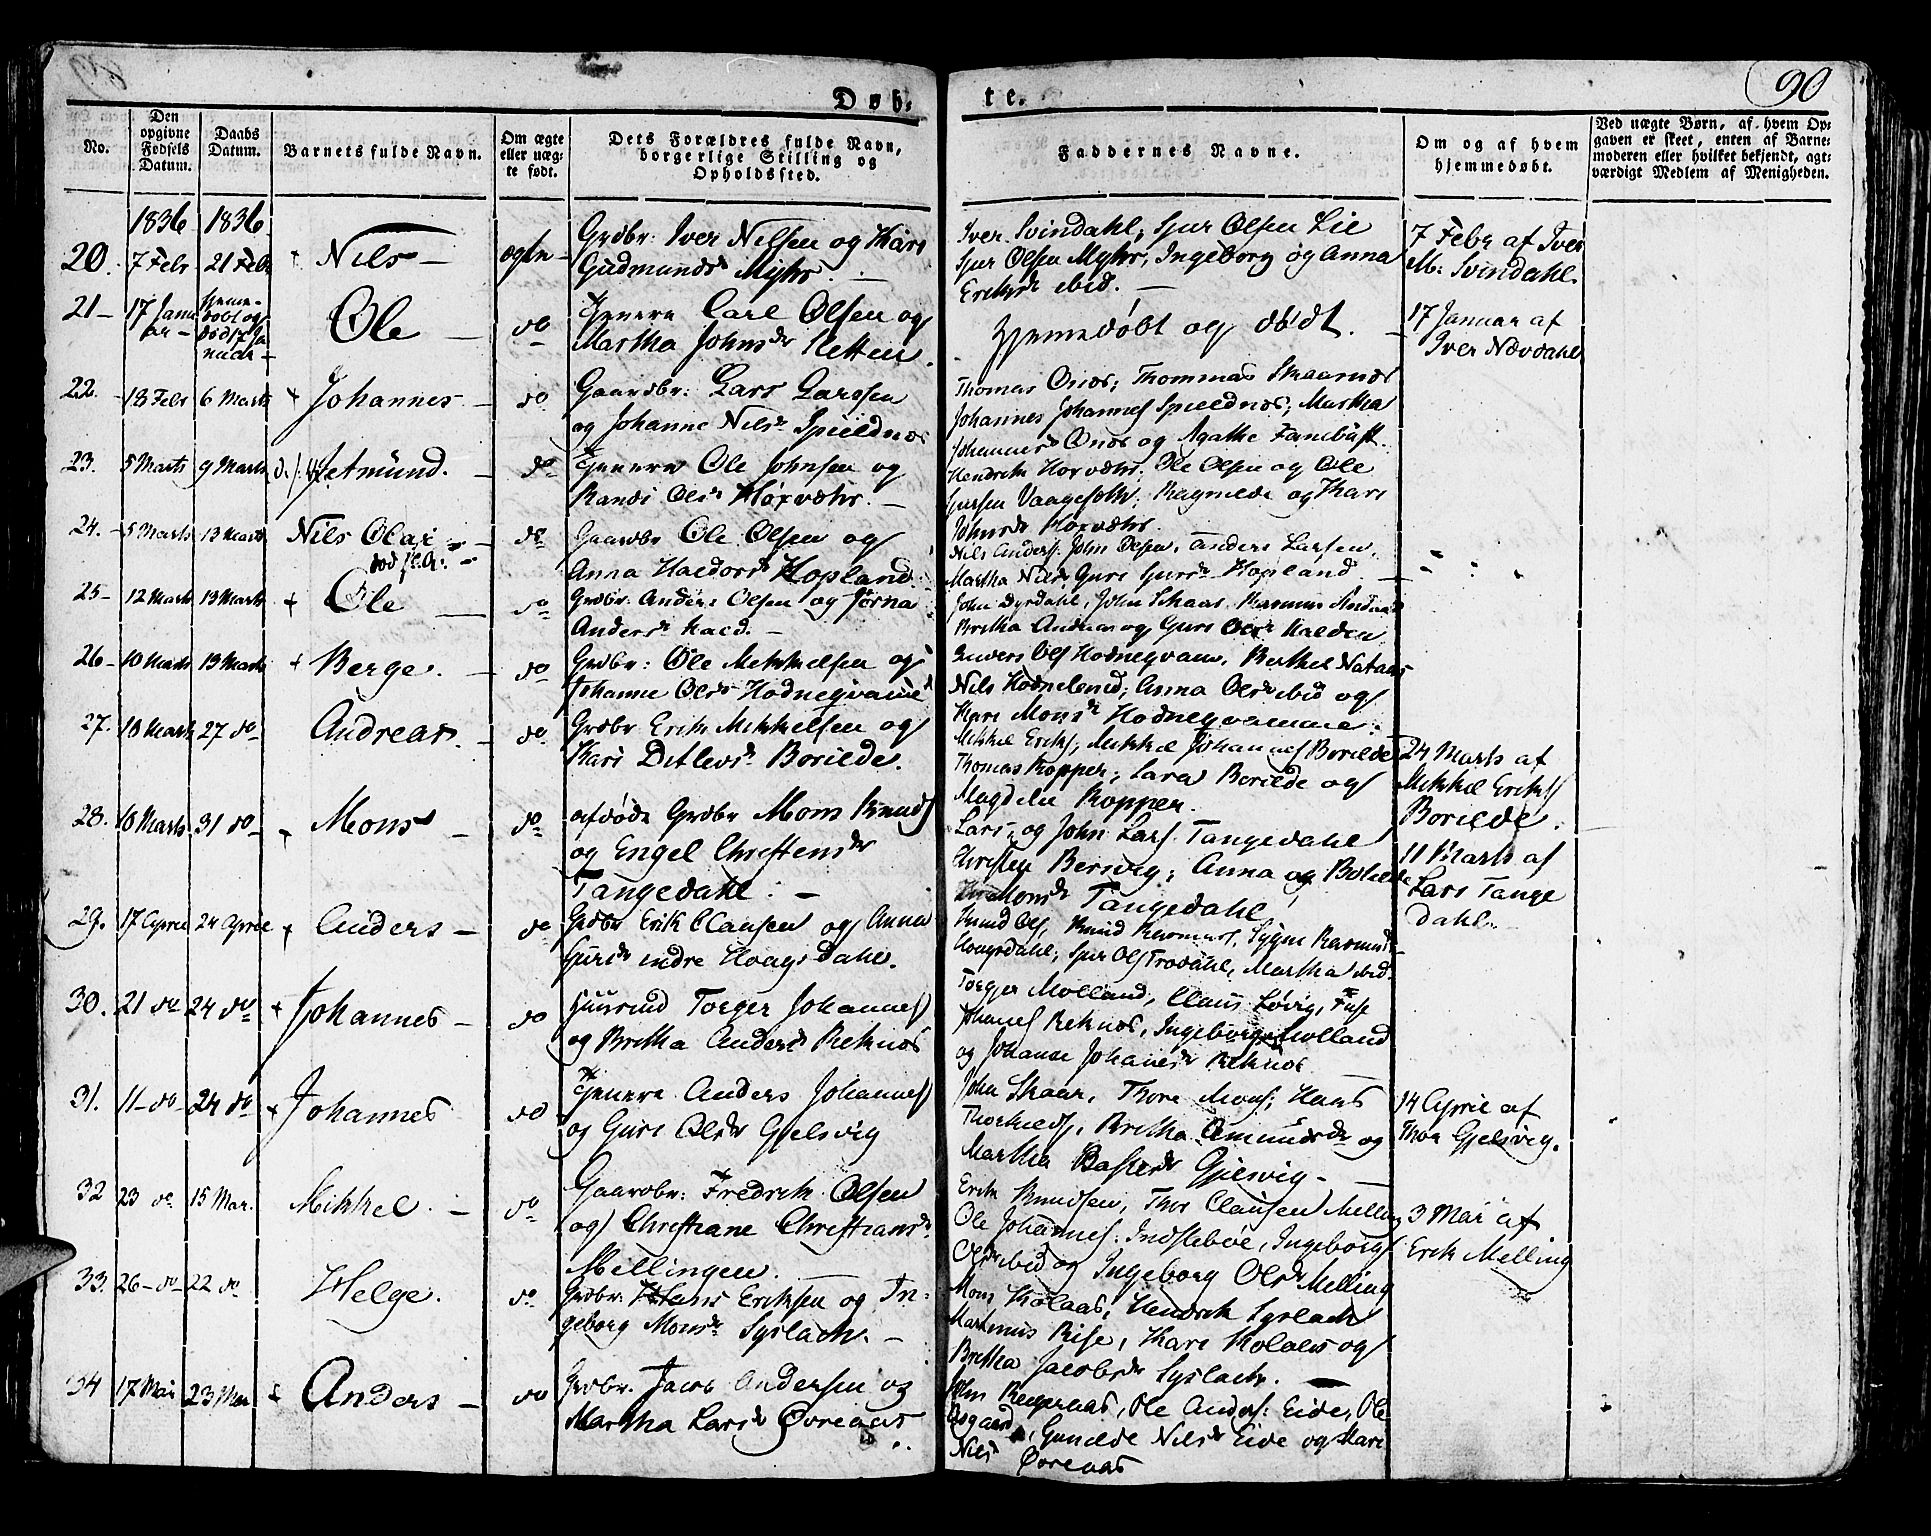 90
Døb-
te.
No.
Den opgivne Fødsels Datum.
Daabs Datum.
Barnets fulde Navn.
Om ægte eller uæg- te født.
Dets Forældres fulde Navn, borgerlige Stilling og Opholdssted.
Faddernes Navne.
Om og af hvem hjemmedøbt.
Ved uægte Børn, af hvem Op- gaven er skeet, enten af Barne- moderen eller hvilket bekjendt, agt- værdigt Medlem af Menigheden.
1836 1836
20. 7 Febr 21 Febr + Nils — ægte — Grdbr: Iver Nilsen og Kari
Gudmundsdr Myhr. —
Iver Svindahl; Sjur Olsen Lie
Sjur Olsen Myhr, Ingeborg og Anna
Eriksdr ibid. —
7 Febr af Iver
M: Svindahl.
21 — 17 Janu ar — hjeme- døbt og død 17 Ja nuar — Ole — do
Carl Olsen og
Martha Johnsdr Ketten.
Hjemmedøbt og dødt. —
17 Januar af
Iver Nævdahl
22. 18 Febr 6 Marts + Johannes — do Gaardbr: Lars Larssen
og Johanne Nilsdr Spieldnæs
Thomas Onæs; Thommas Skaarnæs
Johannes Johannes Spieldnæs; Martha
Onæs og Agathe
23. 5 Marts 9 Marts Jetmund. — do Ole Johnsen og
Randi Olsdr —
Ole Olsen og Ole
Ragnilde og Kari
Johnsdr
24. — 5 Marts 13 Marts Nils Olai — do Gaardbr Ole Olsen og
død
Anna Haldorsdr Hopland.
Nils Anders: John Olsen, Anders Larsen,
Martha Nilsdr Guri Sjursdr Hopland
25 — 12 Marts 13 Marts + Ole — do Grdbr. Anders Olsen og Jorna
Andersdr Hald. —
John Dyrdahl, John Skaar, Rasmus
Brita og Guri Olsdr Halden
26 — 10 Marts 13 Marts + Berge. — do Grdbr: Ole Mikkelsen og
Johanne Olsdr Hodneqvame
Anders Ols Hodneqvam, Berthel Nataas
Nils Anna Olsdr ibid og
Kari Monsdr Hodneqvamme
27. 10 Marts 27 do Andreas. — do Grdbr Erik Mikkelsen og
Kari Detlevsdr Borilde.
Mikkel Eriks, Mikkel Johannes Borilde
Thomas Ropper; Lars Borilde og
Magdele Roppen.
24 Marts af
Mikkel Eriks
Borilde.
28. 10 Marts 31 do Mons — do afdøde Grdbr Mons Knuds
og Engel Christensdr
Tangedahl. —
Lars, og John Lars. Tangedahl
Christen Bersvig; Anna og
Monsdr Tangedahl
11 Marts af
Lars Tange
dahl.
29. 17 April 24 April + Anders — do Grdbr Erik Clausen og Anna
indre Haagsdahl.
Knud Ols, Knud Rasmus, Sygni Rasmusdr
Haagsdahl; Sjur Ols Trodahl, Martha ibid.
30. 21 do 24 do + Johannes — do Huusmd Torger Johannes
og Britha Andersdr Reknæs
Torger Molland, Claus Løvig,
Johannes Reknæs, Ingeborg Molland
og Johanne Johannesdr Reknæs
31. 11 — do 24 do + Johannes do Anders Johannes
og Guri Olsdr Gjelsvig
John Skaar, Thore Mons, Hans
Britha Amundsdr og
Martha Gjelsvig —
14 April af
Thor Gjelsvig.
32 23 do 15 Mai. Mikkel. — do Gaardbr: Fredrik Olsen
og Christiane Christiansdr
Mellingen.
Erik Knudsen, Thor Clausen Melling
Ole Johannes. Indstebøe, Ingeborg
Olsdr ibid og Ingeborg Olsdr Melling
3 Mai af
Erik Melling
33. 26 — do 22 do Helge. do Grdbr. Hans Eriksen og In-
geborg Monsdr Syslach. —
Mons Kolaas, Hendrik Syslach
Rasmus Rise, Kari Kolaas og
Britha Jacobsdr Syslach.
34 17 Mai 23 Mai Anders — do Grdbr. Jacob Andersen og
Martha Larsdr Øvreaas
John Ole Anders: Eide, Ole
Gunilde Nilsdr Eide og Kari
Nilsdr Øvreaas